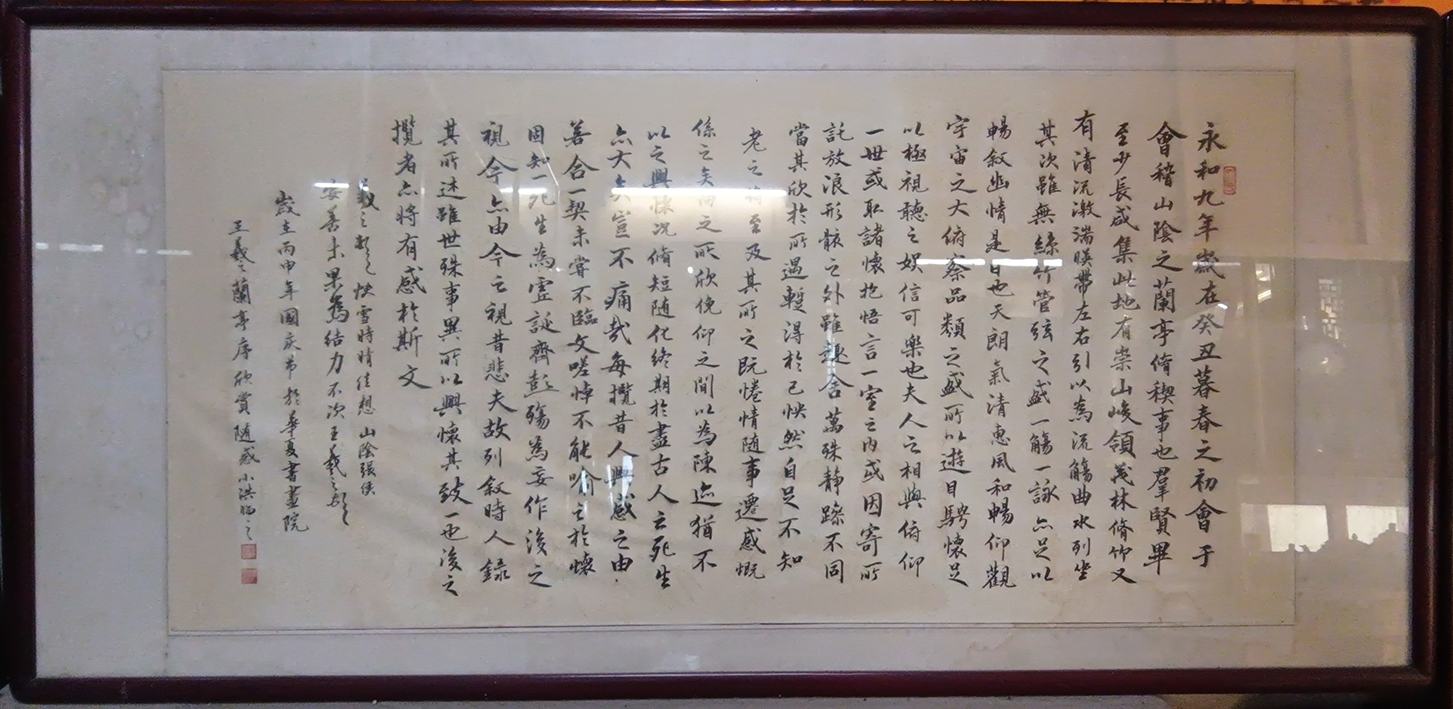 永和九年歲在癸丑暮春之初會于
會稽山陰之蘭亭脩稧事也羣賢畢
至少長咸集此地有崇山峻領茂林脩竹又
有清流激湍暎帶左右引以為流觴曲水列坐
其次雖無絲竹管弦之盛一觴一詠亦足以
暢敘幽情是日也天朗氣清惠風和暢仰觀
宇宙之大俯察品類之盛所以遊目騁懷足
以極視聽之娛信可樂也夫人之相與俯仰
一世或取諸懷抱悟言一室之內或因寄所
託放浪形骸之外雖趣舍萬殊静躁不同
當其欣於所遇暫得於己怏然自足不知
老之將至及其所之既惓情随事遷感慨
係之矣向之所欣俛仰之間以為陳迹猶不
以之興懷況脩短随化終期於盡古人云死生
亦大矣豈不痛哉每攬昔人興感之由
若合一契未嘗不臨文嗟悼不能喻之於懷
固知一死生為虛誕齊彭殤為妄作後之
視今亦由今之視昔悲夫故列敘時人録
其所述雖世殊事異所以興懷其致一也後之
攬者亦將有感於斯文
羲之頓首快雪時晴佳想山陰張侯
安善未果為結力不次王羲之頓首
歲在丙申年國庆节於華夏書畫院
王羲之蘭亭序欣賞随感小洪